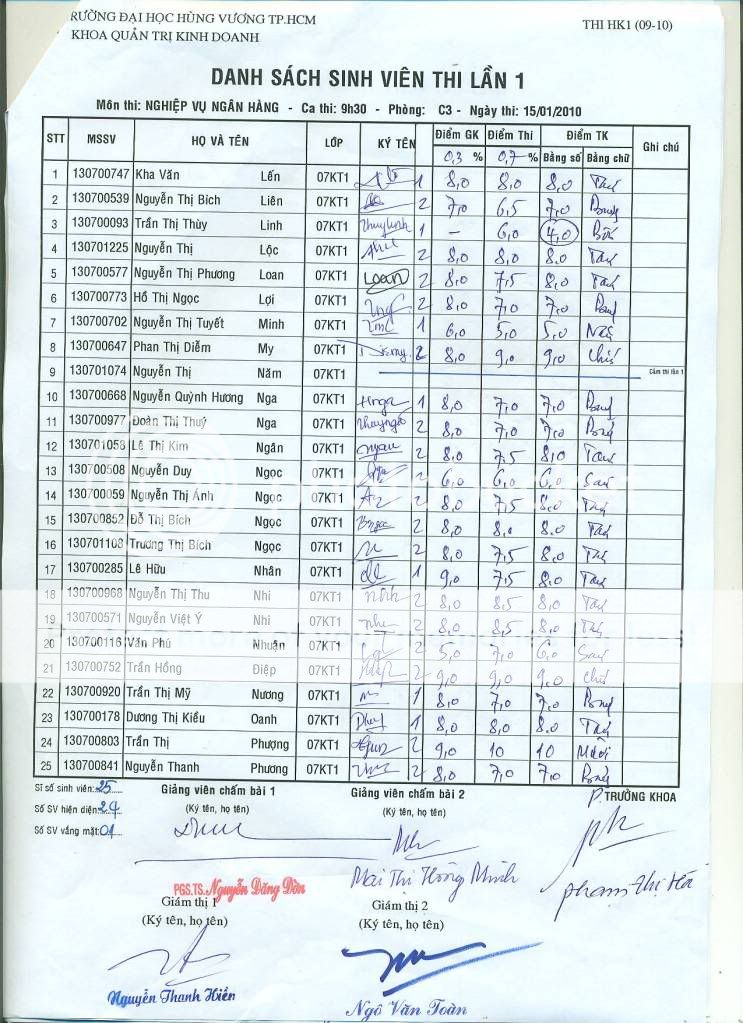 RƯỜNG ĐẠI HỌC HÙNG VƯƠNG TP.HCM THI HK1 (09-10)
KHOA QUẢN TRỊ KINH DOANH
DANH SÁCH SINH VIÊN THI LẦN 1
Môn thi: NGHIỆP VỤ NGÂN HÀNG - Ca thi: 9h30 - Phòng: C3 - Ngày thi: 15/01/2010
STT MSSV HỌ VÀ TÊN LỚP KÝ TÊN Điểm GK Điểm Thi Điểm TK Ghi chú
0,3 % 0,7 % Bằng số Bằng chữ
1 130700747 Kha Văn Lến 07KT1 1 8,0 8,0 8,0 Tám
2 130700539 Nguyễn Thị Bích Liên 07KT1 2 7,0 6,5 7,0 Bảy
3 130700093 Trần Thị Thùy Linh 07KT1 Thuylinh 1 - 6,0 4,0 Bốn
4 130701225 Nguyễn Thị Lộc 07KT1 2 8,0 8,0 8,0 Tám
5 130700577 Nguyễn Thị Phương Loan 07KT1 Loan 2 8,0 7,5 8,0 Tám
6 130700773 Hồ Thị Ngọc Lợi 07KT1 2 8,0 7,0 7,0 Bảy
7 130700702 Nguyễn Thị Tuyết Minh 07KT1 1 6,0 5,0 5,0 Năm
8 130700647 Phan Thị Diễm My 07KT1 2 8,0 9,0 9,0 Chín
9 130701074 Nguyễn Thị Năm 07KT1 Cấm thi lần 1
10 130700668 Nguyễn Quỳnh Hương Nga 07KT1 1 8,0 7,0 7,0 Bảy
11 130700977 Đoàn Thị Thuý Nga 07KT1 2 8,0 7,0 7,0 Bảy
12 130701058 Lê Thị Kim Ngân 07KT1 ngan 2 8,0 7,5 8,0 Tám
13 130700508 Nguyễn Duy Ngọc 07KT1 2 6,0 6,0 6,0 Sáu
14 130700059 Nguyễn Thị Ánh Ngọc 07KT1 2 8,0 7,5 8,0 Tám
15 130700852 Đỗ Thị Bích Ngọc 07KT1 2 8,0 8,0 8,0 Tám
16 130701108 Trương Thị Bích Ngọc 07KT1 2 8,0 7,5 8,0 Tám
17 130700285 Lê Hữu Nhân 07KT1 1 9,0 7,5 8,0 Tám
18 130700968 Nguyễn Thị Thu Nhi 07KT1 2 8,0 8,5 8,0 Tám
19 130700571 Nguyễn Việt Ý Nhi 07KT1 2 8,0 8,5 8,0 Tám
20 130700116 Văn Phú Nhuận 07KT1 2 5,0 7,0 6,0 Sáu
21 130700752 Trần Hồng Điệp 07KT1 2 9,0 9,0 9,0 Chín
22 130700920 Trần Thị Mỹ Nương 07KT1 1 8,0 7,0 7,0 Bảy
23 130700178 Dương Thị Kiều Oanh 07KT1 1 8,0 8,0 8,0 Tám
24 130700803 Trần Thị Phượng 07KT1 2 9,0 10 10 Mười
25 130700841 Nguyễn Thanh Phương 07KT1 2 8,0 7,0 7,0 Bảy
Sĩ số sinh viên: 25 Giảng viên chấm bài 1 Giảng viên chấm bài 2 P. TRƯỞNG KHOA
Số SV hiện diện: 24 (Ký tên, họ tên) (Ký tên, họ tên)
Số SV vắng mặt: 01
PGS.TS. Nguyễn Đăng Dờn Mai Thị Hồng Minh Phạm Thị Hà
Giám thị 1 Giám thị 2
(Ký tên, họ tên) (Ký tên, họ tên)
Nguyễn Thanh Hiền Ngô Văn Toàn